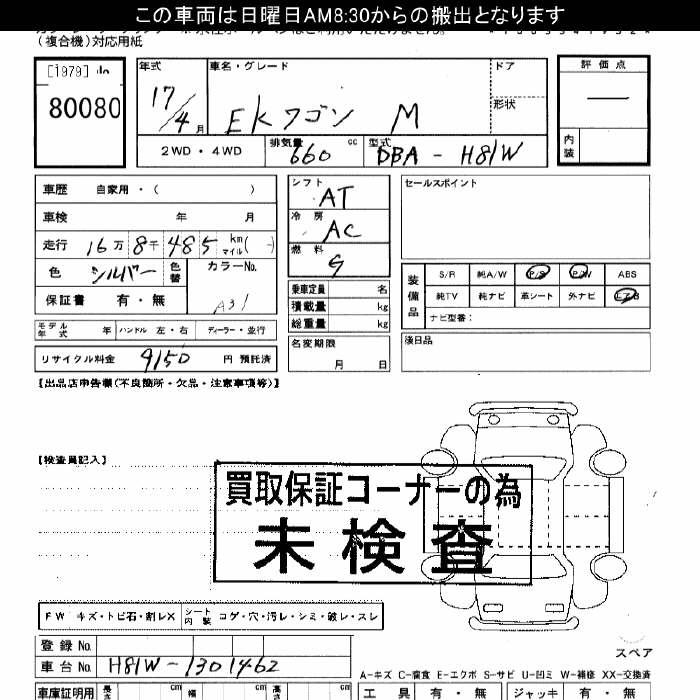 この車両は日曜日AM8:30からの搬出となります
(複合機)対応用紙
[1979]
80080
年式 車名・グレード ドア 評価点
17/4月 EKワゴン M 形状
内装
2WD・4WD 排気量 660 cc 型式 DBA - H81W
車歴 自家用・( )
車検 年 月
走行 16万8千485 km マイル( - )
色 シルバー 色替 カラーNo. A31
保証書 有・無
モデル年式 年 ハンドル 左・右 ディーラー・並行
リサイクル料金 9150 円 預託済
シフト AT
冷房 AC
燃料 G
乗車定員 名
積載量 kg
総重量 kg
名変期限 月 日
セールスポイント
装備品 S/R 純A/W P/S P/W ABS
純TV 純ナビ 革シート 外ナビ エアB
ナビ型番:
後日品
【出品店申告欄(不良箇所・欠品・注意事項等)】
【検査員記入】
買取保証コーナーの為
未検査
FW キズ・トビ石・割レX シート内装 コゲ・穴・汚レ・シミ・破レ・スレ
登録No.
車台No. H81W-1301462
スペア
A-キズ C-腐食 E-エクボ S-サビ U-凹ミ W-補修 XX-交換済
車庫証明用 長さ cm 幅 cm 高さ cm 工具 有・無 ジャッキ 有・無